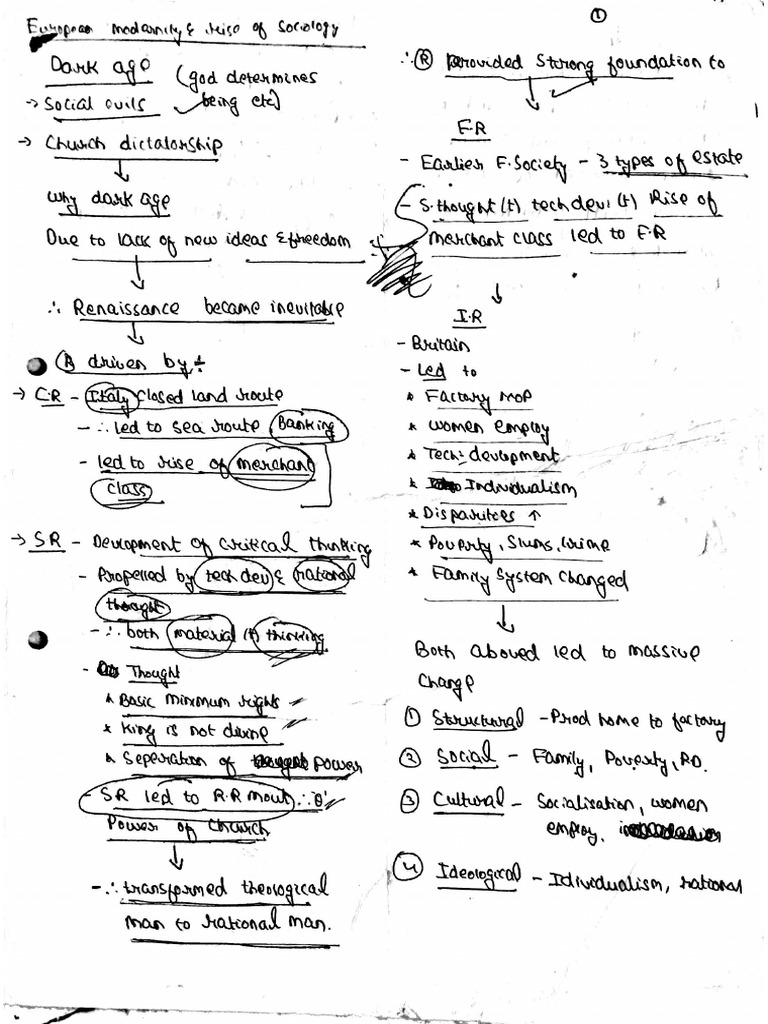 European modernity & rise of Sociology
Dark age
(god determines
being etc)
→ Social evils
→ Church dictatorship
↓
Why dark age
Due to lack of new ideas & freedom
↓
∴ Renaissance became inevitable
↓
Ⓡ driven by ÷
→ C.R - Italy closed land route
- ∴ led to sea route Banking
- led to rise of merchant
class
→ SR - Devlopment of critical thinking
- Propelled by tech dev & rational
thought
- ∴ both material (+) thinking
- Thought
* Basic minimum rights
* King is not divine
* Seperation of power
- SR led to R.R mout ∴ 'θ'
Power of church
↓
- ∴ transformed theological
man to rational man.
①
∴ Ⓡ provided strong foundation to
↓
F.R
- Earlier F. Society - 3 types of estate
- S. thought (+) tech devl (+) Rise of
merchant class led to F.R
↓
I.R
- Britain
- Led to
* Factory MOP
* Women employ
* Tech devlopment
* Individualism
* Disparites ↑
* Poverty, Slums, crime
* Family System Changed
↓
Both aboved led to massive
change
① Structural - Prod home to factory
② Social - Family, Poverty, RD.
③ Cultural - Socialisation, women
employ,
④ Ideological - Individualism, rational